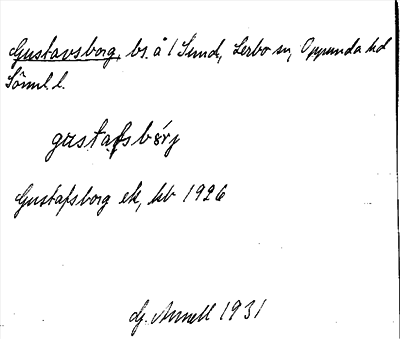 Gustavsborg, bs. å 1 Sund, Lerbo sn, Oppunda hd
Södml. l.
gustafsbòrj
Gustafsborg ek, kb 1926
G. Annell 1931